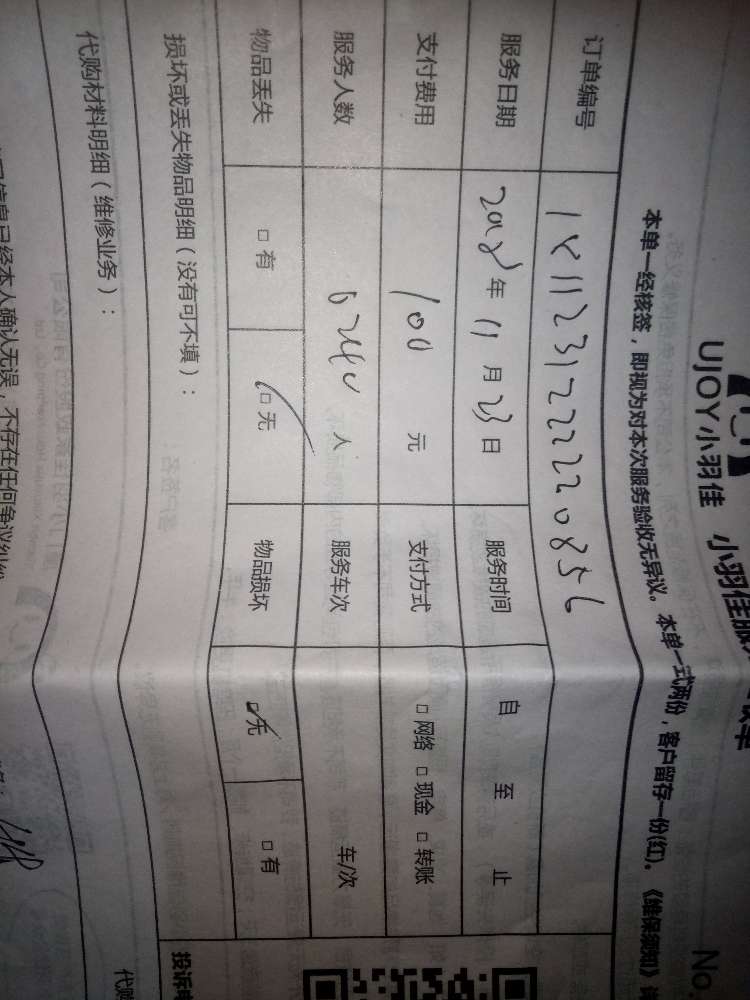 UJOY小羽佳 小羽佳服务
No
本单一经核签，即视为对本次服务验收无异议。本单一式两份，客户留存一份(红)。《维保须知》
订单编号 1811231222220856
服务日期 2018年11月23日 服务时间 自 至 止
支付费用 100 元 支付方式 □网络 □现金 □转账
服务人数 人 服务车次 车/次
物品丢失 □有 □无 物品损坏 □无 □有
损坏或丢失物品明细（没有可不填）：
投诉电
代购材料明细（维修业务）：
代购
信息已经本人确认无误，不存在任何争议纠纷